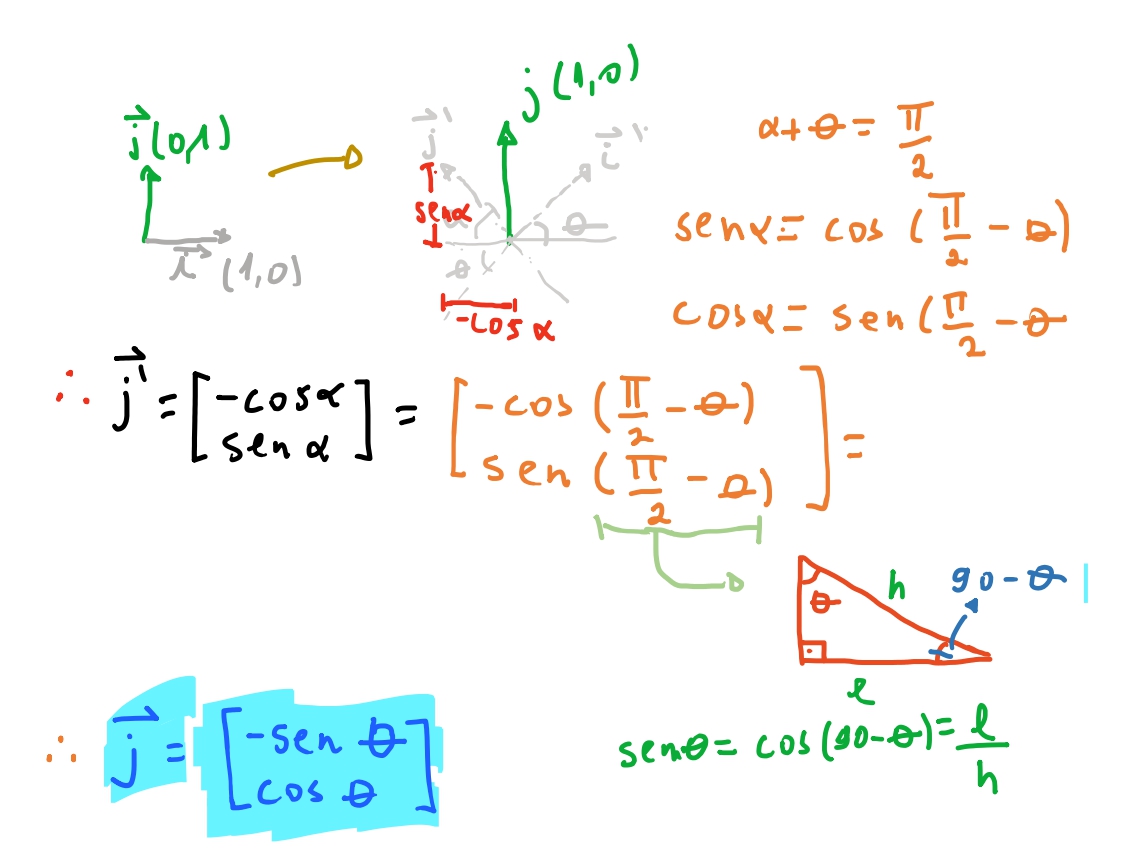 j⃗ (0,1)
i⃗ (1,0)
j (1,0)
j⃗'
i⃗'
senα
θ
θ
-cos α
α+θ = π/2
senα = cos (π/2 - θ)
cosα = sen (π/2 - θ
∴ j⃗' = [-cosα
sen α] = [-cos (π/2 - θ)
sen (π/2 - θ)] =
θ
h
90-θ
l
senθ = cos(90-θ) = l/h
∴ j⃗ = [-sen θ
cos θ]